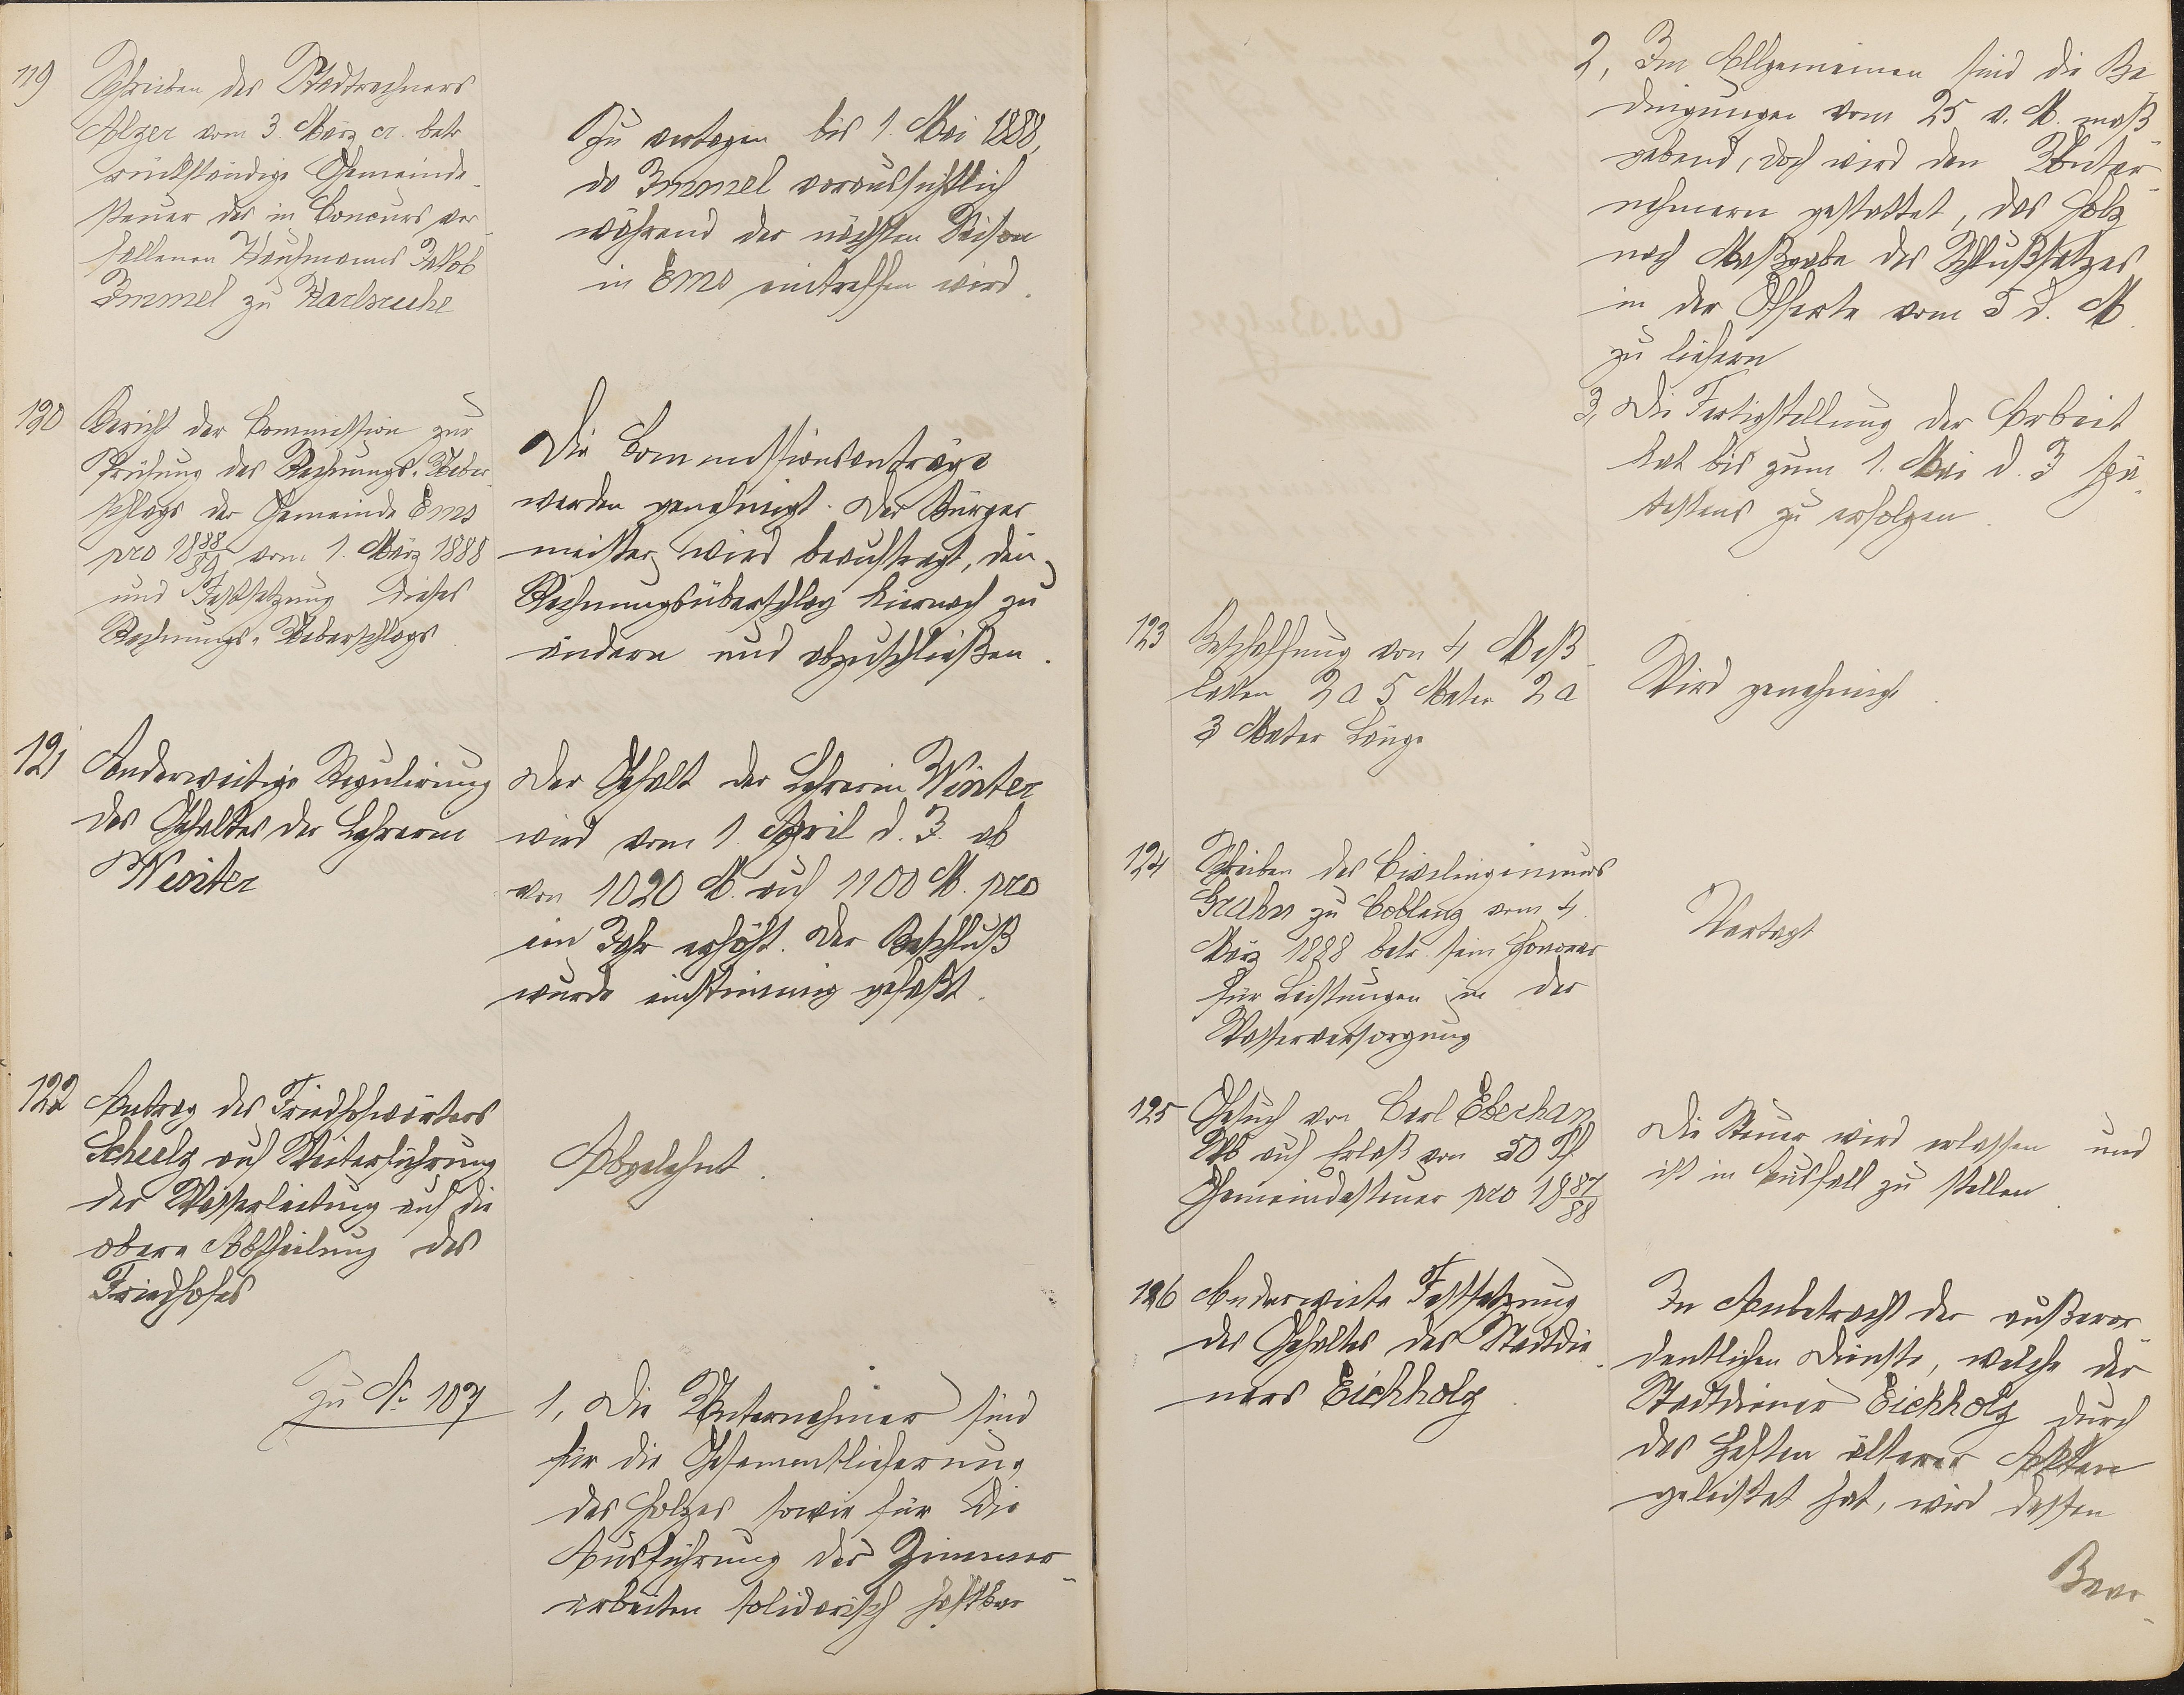 119
Schreiben des Stadtrechners
Alzer vom 3. März cr. betr.
rückständige Gemeinde-
steuer des in Concurs ver-
fallenen Kaufmanns Jakob
Immel zu Karlsruhe
Zu vertagen bis 1. Mai 1888,
da Immel voraussichtlich
während der nächsten Saison
in Ems eintreffen wird.
120
Bericht der Commission zur
Prüfung des Rechnungs-Ueber-
schlags der Gemeinde Ems
pro 1888/89 vom 1. März 1888
und Festsetzung dieses
Rechnungs-Ueberschlags
Die Commissionsanträge
werden genehmigt. Der Bürger
meister wird beauftragt, den
Rechnungsüberschlag hiernach zu
ändern und abzuschließen.
121
Anderweitige Regulirung
des Gehaltes der Lehrerin
Winter
Der Gehalt der Lehrerin Winter
wird vom 1. April d. J. ab
von 1020 M. auf 1100 M. pro
ein Jahr erhöht. Der Beschluß
wurde einstimmig gefaßt.
122
Antrag des Friedhofwärters
Schulz auf Weiterführung
der Wasserleitung auf die
obere Abtheilung des
Friedhofes
Abgelehnt.
Zu № 107
1, Die Unternehmer sind
für die Gesammtlieferung
des Holzes sowie für die
Ausführung der Zimmer-
arbeiten solidarisch haftbar
2, Im Allgemeinen sind die Be
dingungen vom 25 v. M. maß-
gebend, doch wird den Unter-
nehmern gestattet, das Holz
nach Maßgabe des Schlußsatzes
in der Offerte vom 5 d. M.
zu liefern
3, Die Fertigstellung der Arbeit
hat bis zum 1. Mai d. J. spä-
testens zu erfolgen.
123
Beschaffung von 4 Meß-
latten 2 a 5 Meter 2 a
3 Meter Länge
Wird genehmigt.
124
Schreiben des Civilingenieurs
Grahn zu Coblenz vom 4.
März 1888 betr. sein Honorar
für Leistungen in der
Wasserversorgung
Vertagt
125
Gesuch von Carl Eberhan
Wb auf Erlaß von 50 Pf.
Gemeindesteuer pro 1887/88
Die Steuer wird erlassen und
ist in Ausfall zu stellen.
126
Anderweite Festsetzung
des Gehaltes des Stadtdie-
ners Eichholz.
In Anbetracht der außeror-
dentlichen Dienste, welche der
Stadtdiener Eichholz durch
das Heften älterer Akten
geleistet hat, wird dessen